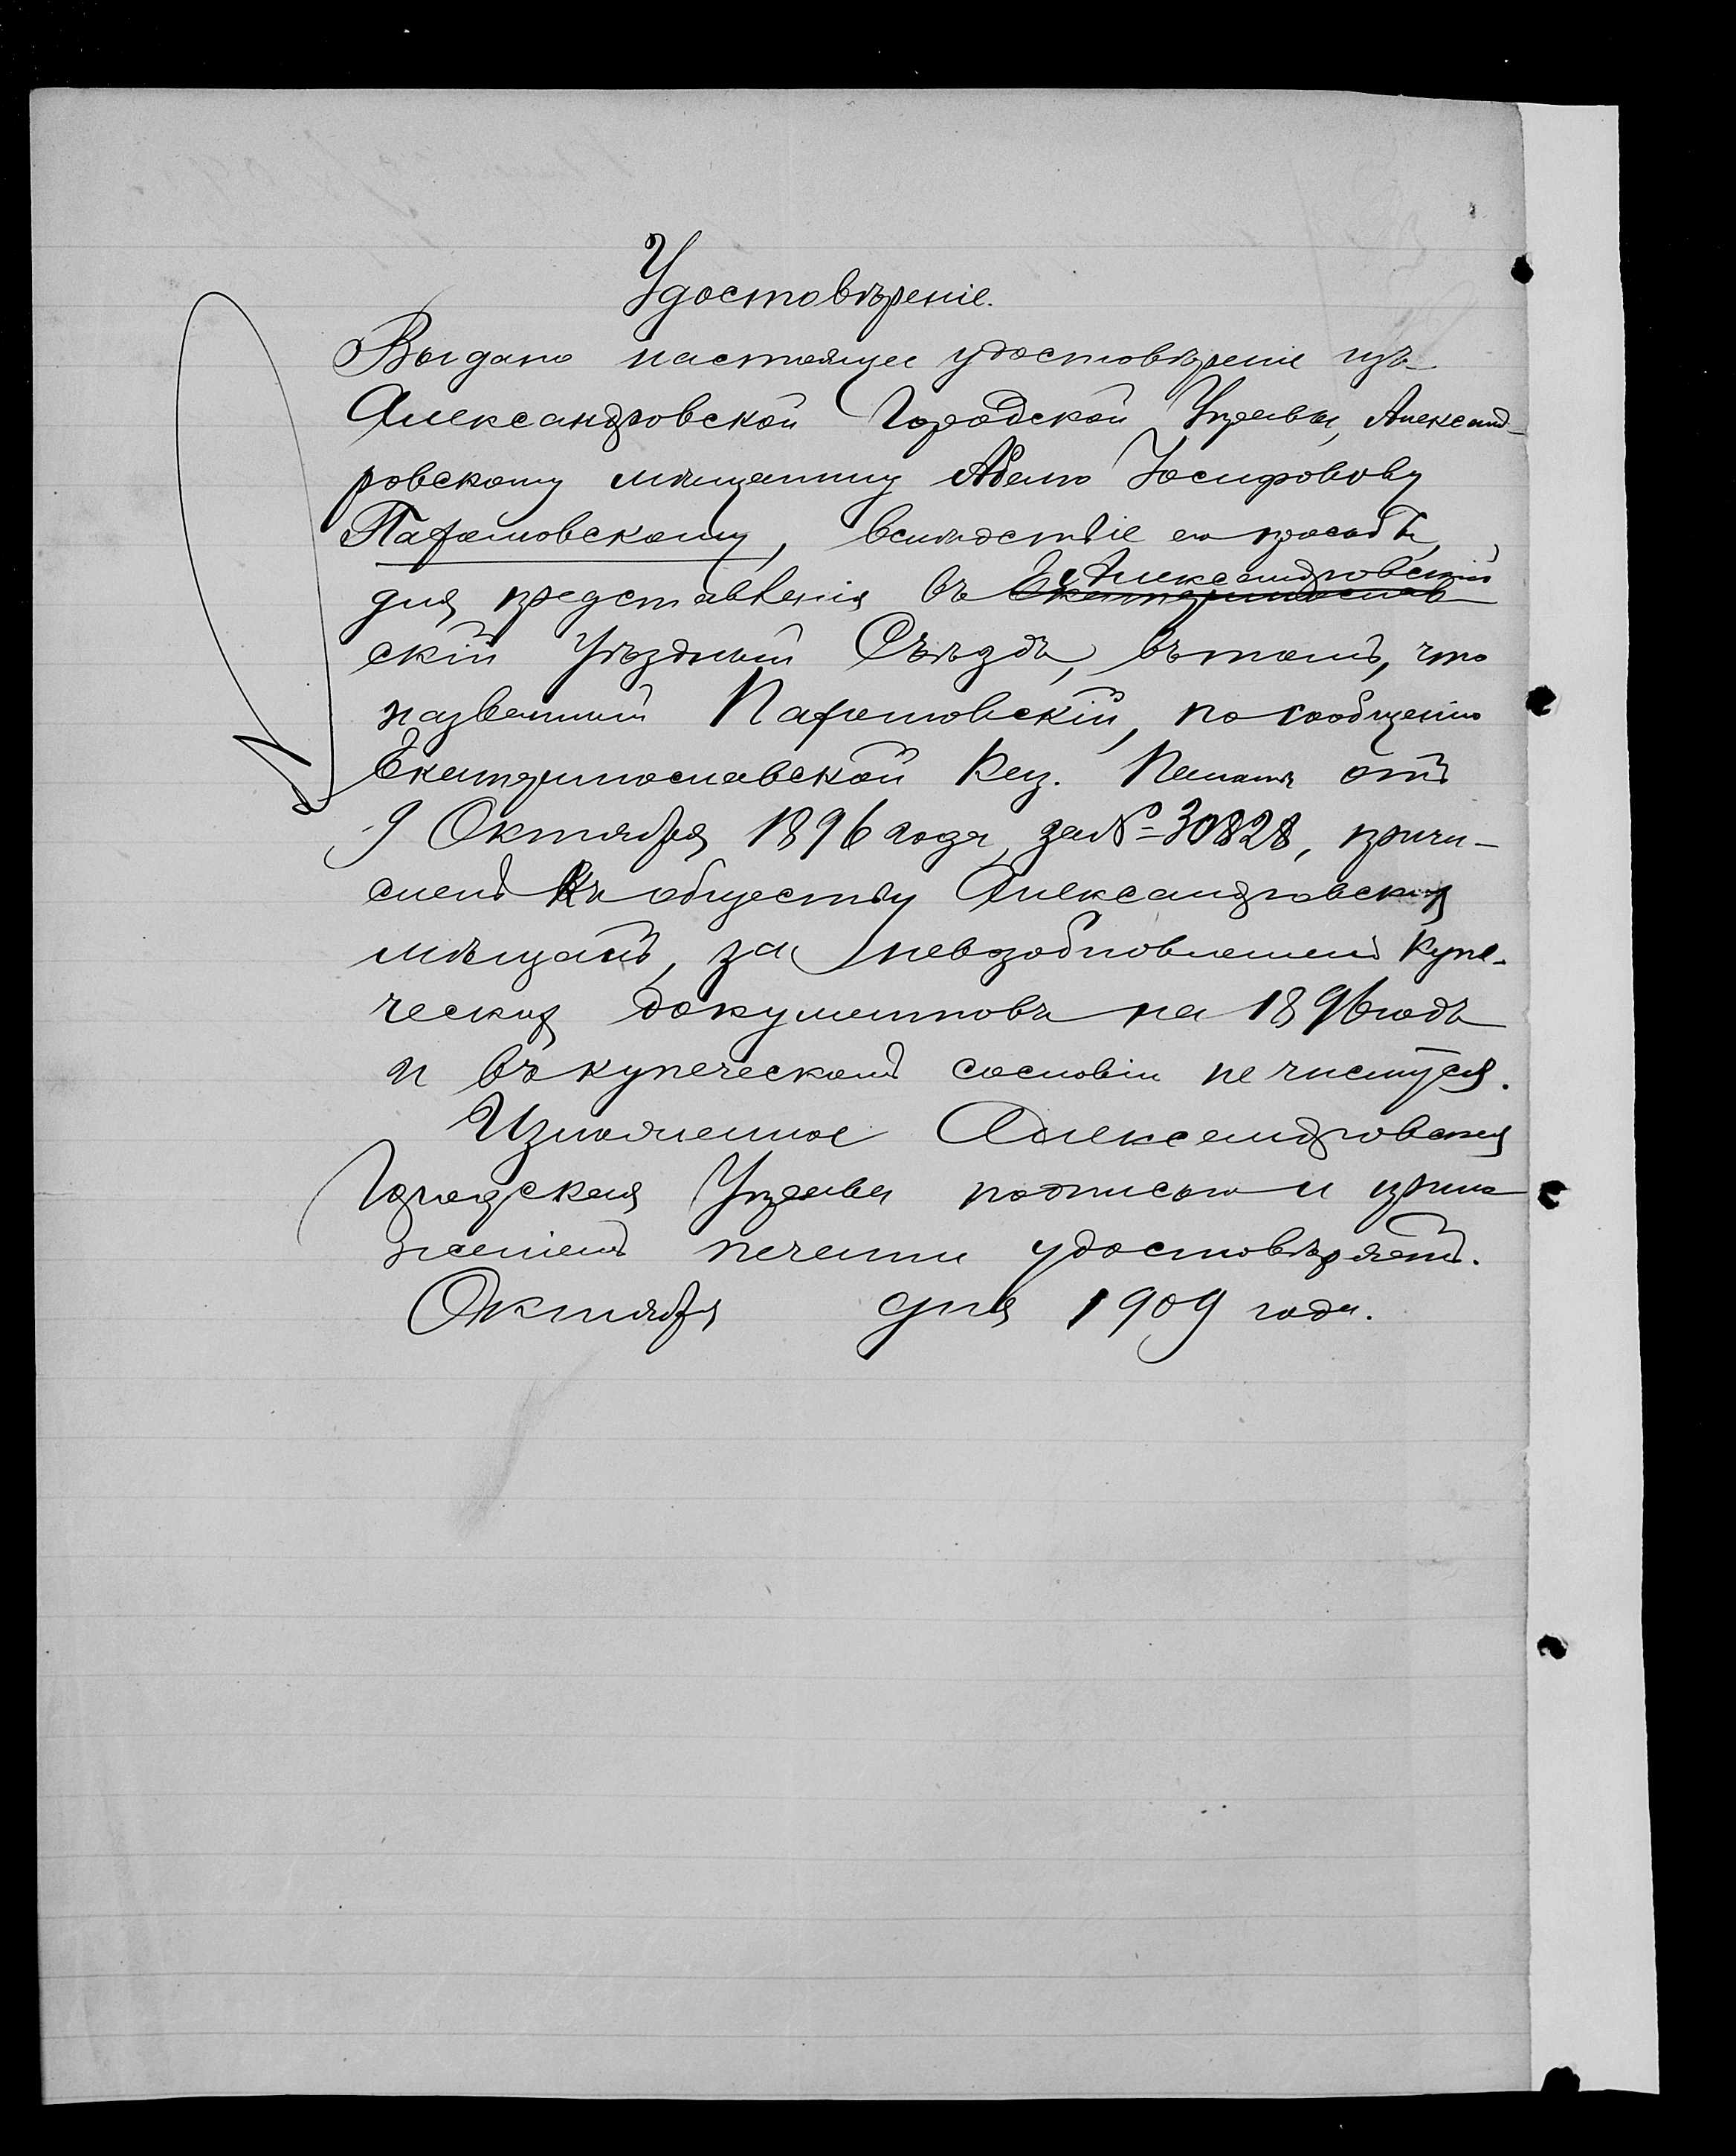 Удостовѣреніе.
Выдано настоящее удостовѣреніе изъ
Александровской Городской Управы, Александ-
ровскому мѣщанину Абелю Іосифовову
Пафомовскому, вслѣдствіе его просьбы,
Александровскій
для представленія въ Екатеринослав
скій Уѣздный Съѣздъ, въ томъ, что
названный Пафомовскій, по сообщенію
Екатеринославской Каз. Палаты отъ
9 Октября 1896 года, за № 30828, причи-
сленъ къ обществу Александровскихъ
мѣщанъ, за невозобновленіемъ купе-
ческихъ документовъ на 1896 годъ
и въ купеческомъ сословіи не числится.
Изложенное Александровская
Городская Управа подписью и прило
женіемъ печати удостовѣряетъ.
Октября дня 1909 года.